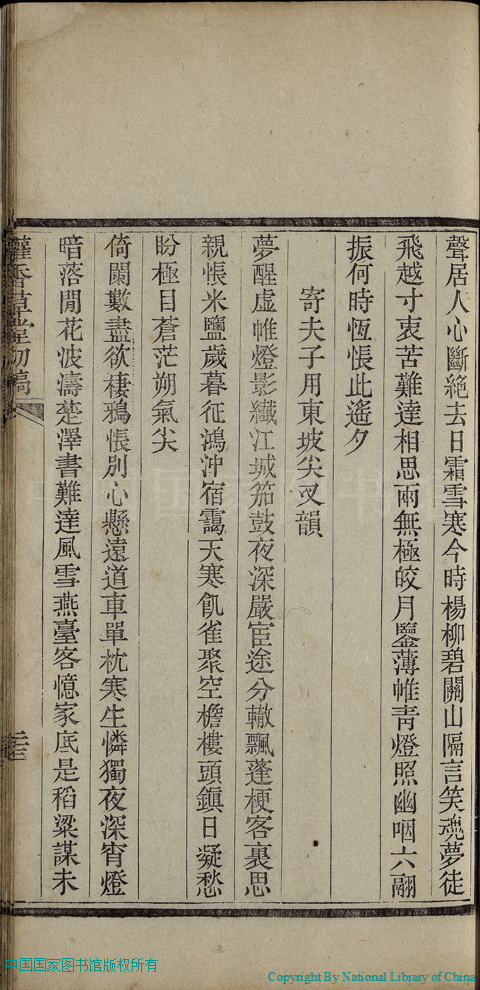 聲居人心斷絕去日霜雪寒今時楊柳碧關山隔言笑魂夢徒
飛越寸衷苦難達相思兩無極皎月鑒薄帷青燈照幽咽六翮
振何時恆悵此遙夕
寄夫子用東坡尖叉韻
夢醒虛帷燈影纖江城笳鼓夜深嚴宦途分轍飄蓬梗客裏思
親悵米鹽歲暮征鴻沖宿靄天寒飢雀聚空檐樓頭鎮日凝愁
盼極目蒼茫朔氣尖
倚闌數盡欲棲鴉悵別心懸遠道車單枕寒生憐獨夜深宵燈
暗落閒花波濤楚澤書難達風雪燕臺客憶家底是稻粱謀未
香草堂初稿
中国国家图书馆版权所有
Copyright By National Library of China